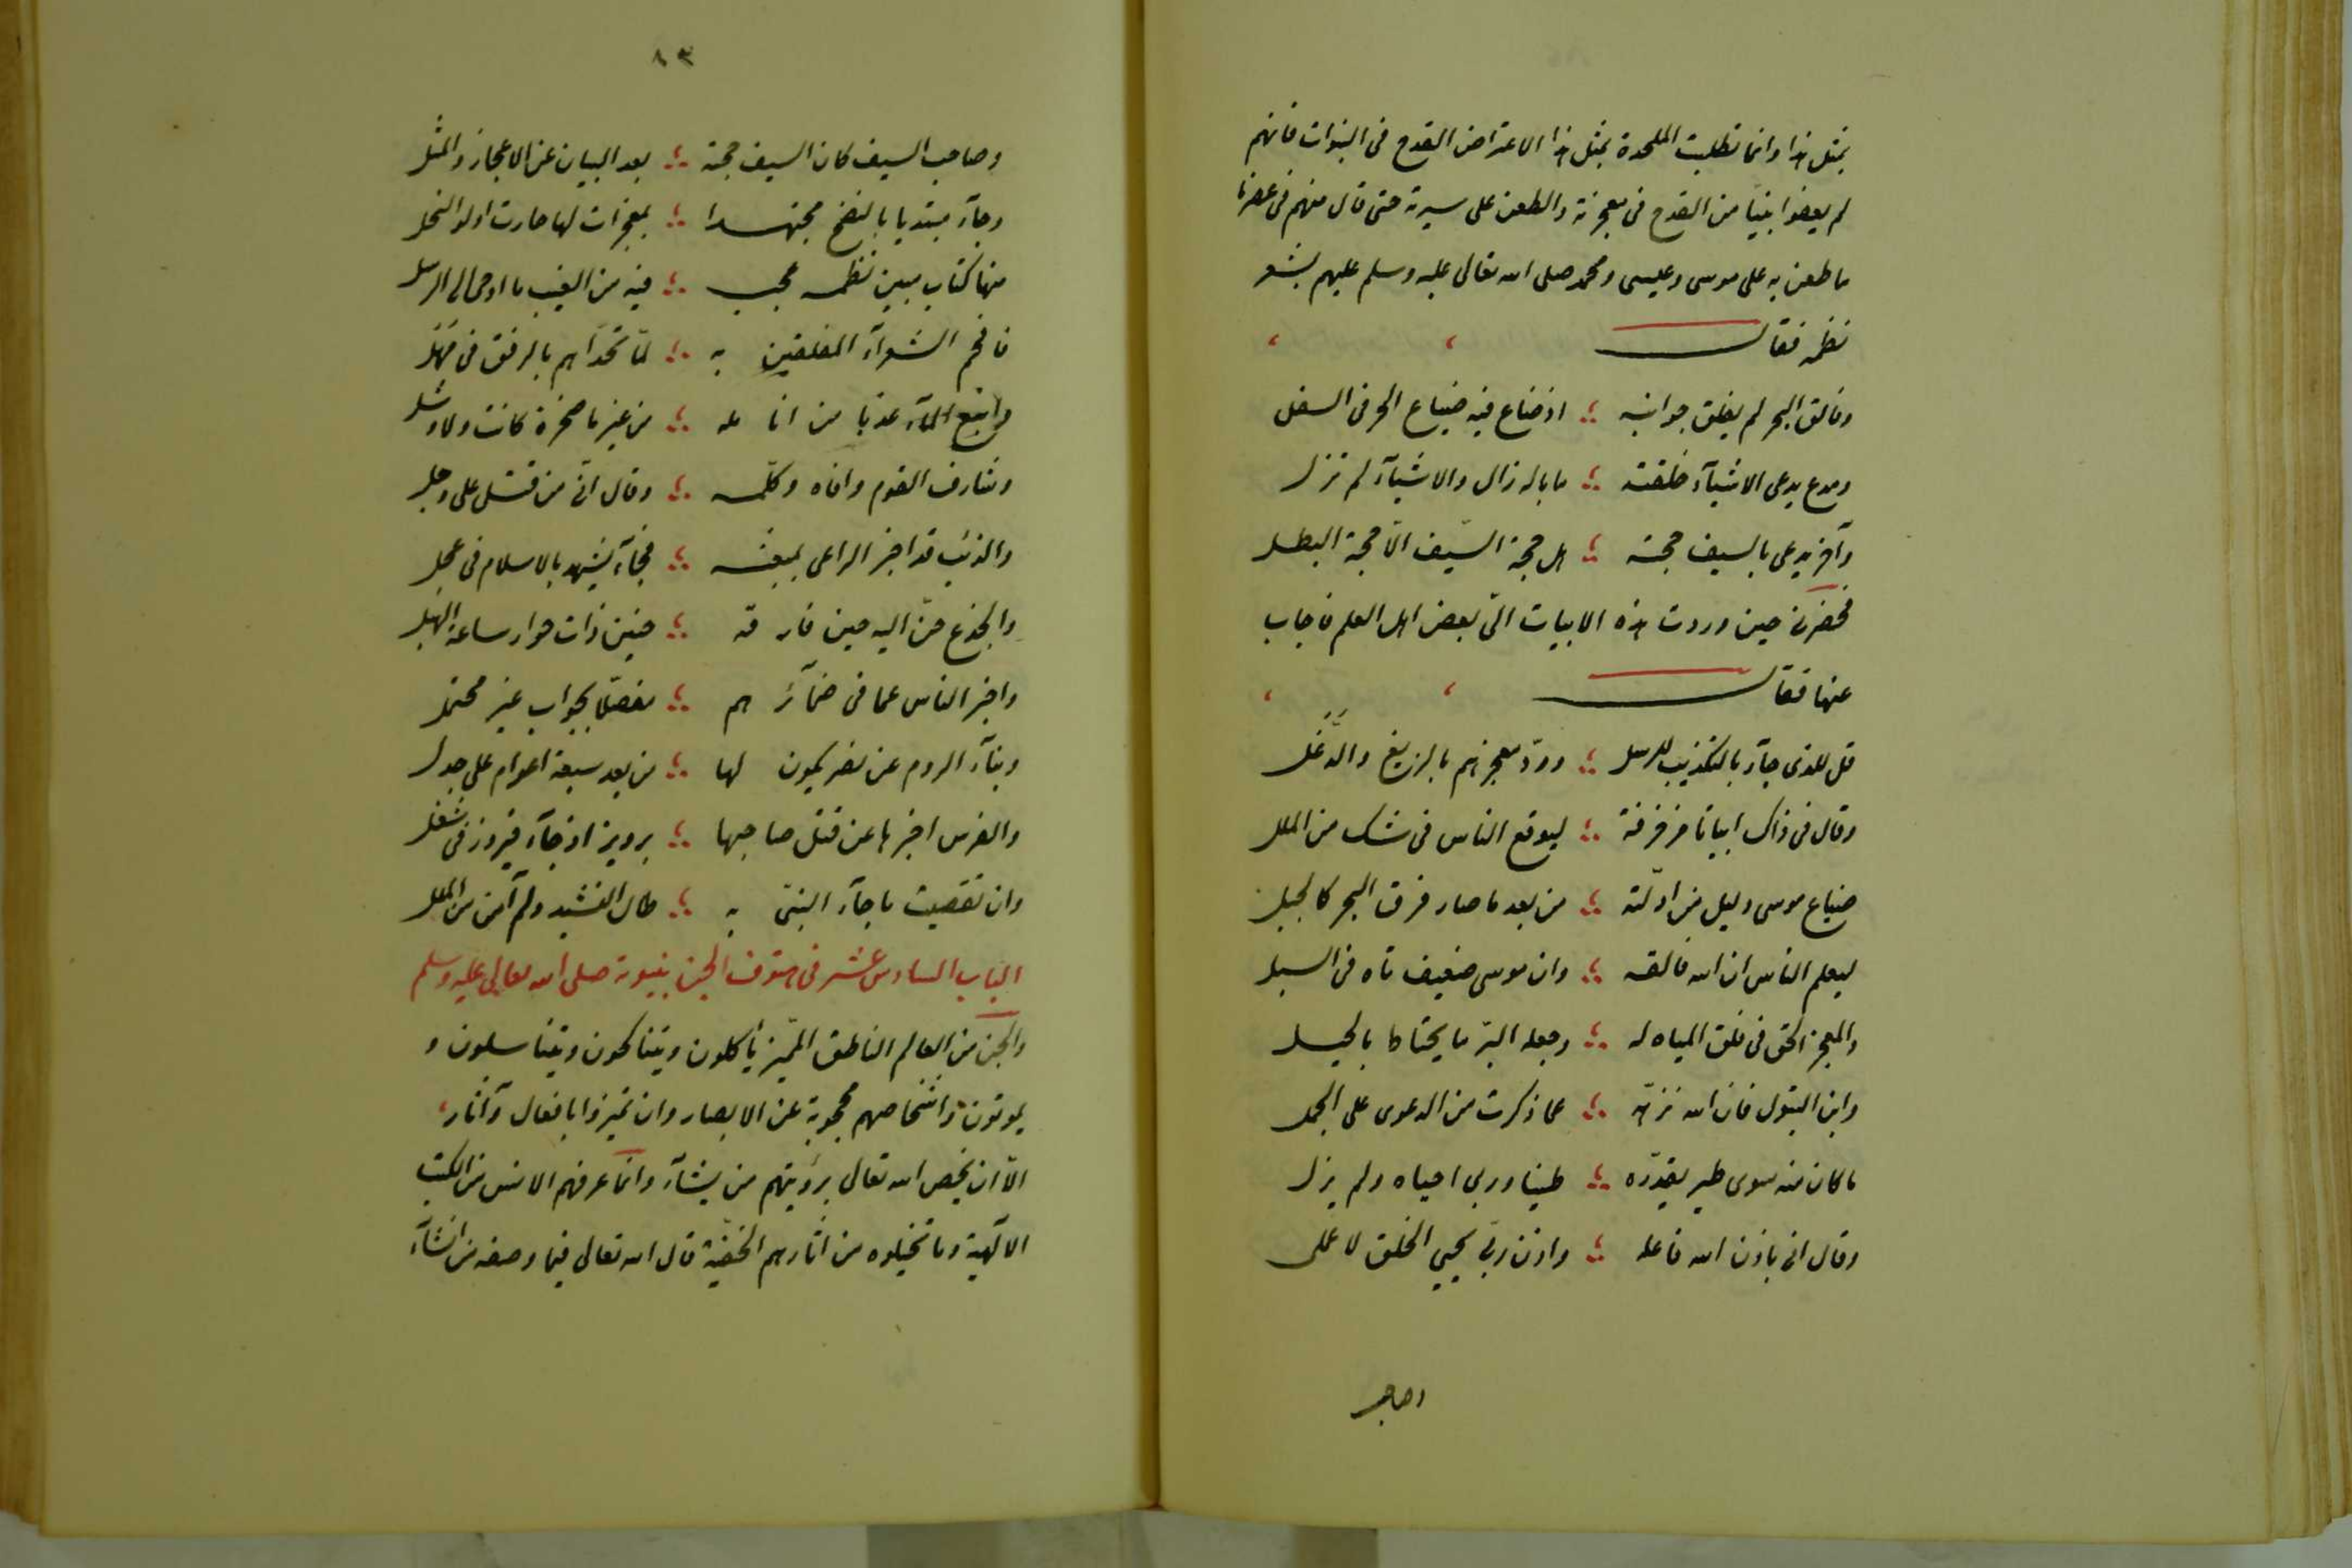 بمثل هذا وانما تطلبت الملحدة بمثل هذا الاعتراض القدح فى النبوات فانهم
لم يعفوا نبيّا من القدح فى معجزته والطعن على سيرته حتى قال منهم فى عصرنا
ما طعن به على موسى وعيسى ومحمد صلى الله تعالى عليه وسلم عليهم بشعر
نظمه فقال
وفالق البحر لم يفلق جوانبه ؛ اذ ضاع فيه ضياع الحر فى السفل
ومدع يدعى الاشيآء خلقته ؛ ما باله زال والاشيآء لم تزل
وآخر يدعى بالسيف حجته ؛ هل حجة السّيف الّا حجة البطل
فحضرنى حين وردت هذه الابيات الىّ بعض اهل العلم فاجاب
عنها فقال
قل للذى جآء بالتكذيب للرسل ؛ وردّ معجزهم بالزيغ والدّغل
وقال فى ذاك ابياتا مزخرفة ؛ ليوقع الناس فى شك من الملل
ضياع موسى دليل من ادلّته ؛ من بعد ما صار فرق البحر كالجبل
ليعلم الناس ان الله فالقه ؛ وان موسى ضعيف تاه فى السبل
والمعجز الحق فى فلق المياه له ؛ وجعله البرّ ما يحتاط بالحيل
وابن البتول فان الله نزّهه ؛ عما ذكرت من الدعوى على الجمل
ما كان منه سوى طير يقدّره ؛ طينا وربى احياه ولم يزل
وقال انى باذن الله فاعله ؛ واذن ربّى يحيى الخلق لا عملى
وصاحب
٨٣
وصاحب السيف كان السيف حجته ؛ بعد البيان عن الاعجاز والمثل
وجآء مبتديا بالنصح مجتهدا ؛ بمعجزات لها حارت اولوا النحل
منها كتاب مبين نظمه عجب ؛ فيه من الغيب ما اوحى الى الرسل
فافحم الشعرآء المفلقين به ؛ لمّا تحدّاهم بالرفق فى مهل
وانبع المآء عذبا من انامله ؛ من غير ما صخرة كانت ولا وشل
وشارف القوم وافاه وكلّمه ؛ وقال انّى من قتلى على وجل
والذئب قد اخبر الراعى بمبعثه ؛ فجآء يشهد بالاسلام فى عجل
والجذع حنّ اليه حين فارقه ؛ حنين ذات حوار ساعة الهبل
واخبر الناس عما فى ضمآئرهم ؛ مفصّلا بجواب غير محتمل
ونبآء الروم عن نصر يكون لها ؛ من بعد سبعة اعوام على جدل
والفرس اخبرها عن قتل صاحبها ؛ برويز اذ جآء فيروز فى شغل
وان تقصيت ما جآء النبىّ به ؛ طال النشيد ولم آمن من الملل
الباب السادس عشر فى هتوف الجن بنبوته صلى الله تعالى عليه وسلم
والجن من العالم الناطق المميّز يأكلون ويتناكحون ويتناسلون و
يموتون واشخاصهم محجوبة عن الابصار وان تميزوا بافعال وآثار
الّا ان يخص الله تعالى برؤيتهم من يشآء وانما عرفهم الانس من الكتب
الآلهية وما تخيلوه من اثارهم الخفيّة قال الله تعالى فيما وصفه من انشآء